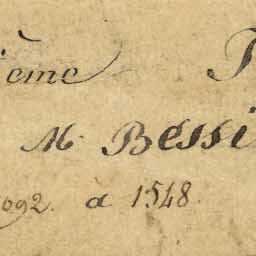 ième
M. Bessi
1092. à 1548.